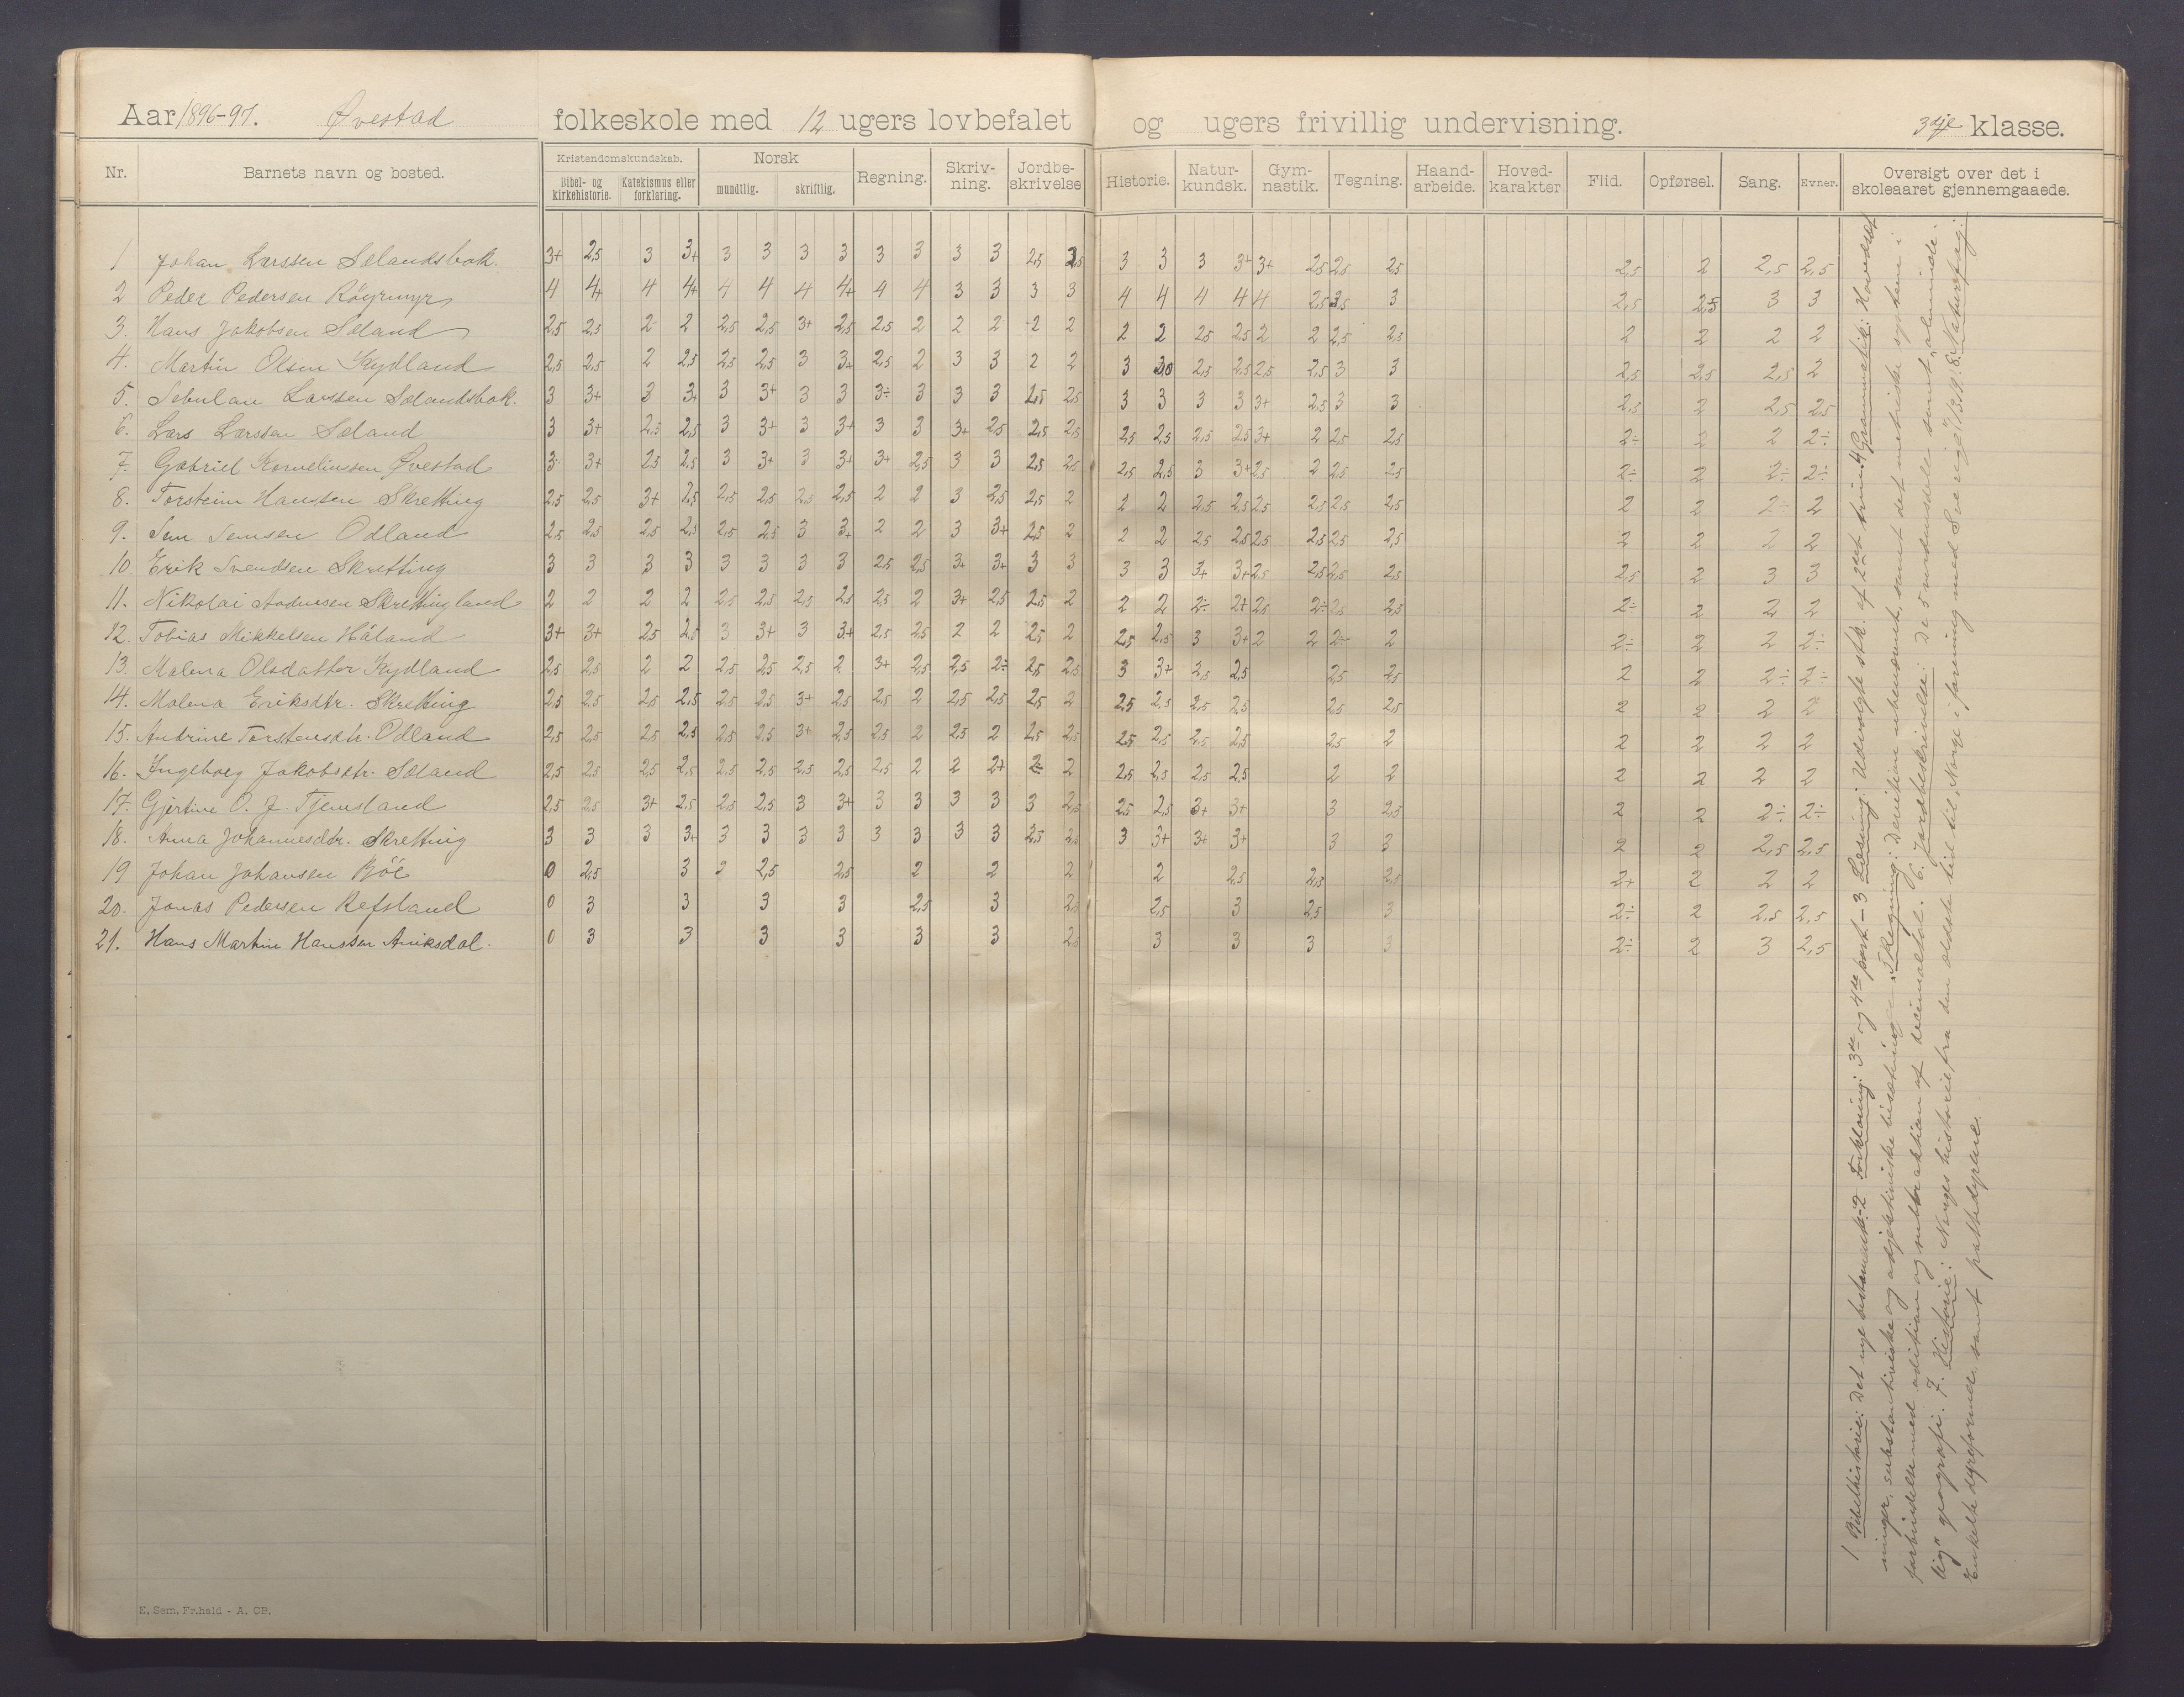 Aar 1896-97. Øvestad folkeskole med 12 ugers lovbefalet og ugers frivillig undervisning. 3dje klasse.
Nr. Barnets navn og bosted. Kristendomskundskab. Norsk Regning. Skriv-ning. Jordbe-skrivelse Historie. Natur-kundsk. Gym-nastik. Tegning. Haand-arbeide. Hoved-karakter Flid. Opførsel. Sang. Evner. Oversigt over det i skoleaaret gjennemgaaede.
Bibel- og kirkehistorie. Katekismus eller forklaring. mundtlig. skriftlig.
1 Johan Larssen Sælandsbak. 3+ 2,5 3 3+ 3 3 3 3 3 3 3 3 2,5 3 3 3 3+ 3+ 2,5 2,5 2,5 2,5 2 2,5 2,5
2 Peder Pedersen Röyrmyr 4 4+ 4 4+ 4 4 4 4+ 4 4 3 3 3 3 4 4 4 4 4 2,5 3 2,5 3 3
3. Hans Jakobsen Sæland 2,5 2,5 2 2 2,5 2,5 3+ 2,5 2,5 2 2 2 2 2 2 2 2,5 2,5 2 2 2,5 2,5 2 2 2 2
4. Martin Olsen Kydland 2,5 2,5 2 2,5 2,5 2,5 3 3+ 2,5 2 3 3 2 2 3 2,5 2,5 2,5 2,5 3 3 2,5 2,5 2,5 2
5. Sebulan Larssen Sælandsbak. 3 3+ 3 3+ 3 3+ 3 3 3÷ 3 3 3 2,5 2,5 3 3 3 3 3+ 2,5 3 3 2,5 2 2,5 2,5
6. Lars Larssen Sæland 3 3+ 2,5 2,5 3 3+ 3 3+ 3 3 3+ 2,5 2,5 2,5 2,5 2,5 2,5 2,5 3+ 2 2,5 2,5 2÷ 2 2 2÷
7. Gabriel Kornelinssen Øvestad 3 3+ 2,5 2,5 3 3+ 3 3+ 3+ 2,5 3 3 2,5 2,5 2,5 2,5 3 3+ 2,5 2 2,5 2,5 2÷ 2 2÷ 2÷
8. Torstein Hansen Skretting 2,5 2,5 3+ 2,5 2,5 2,5 2,5 2,5 2 2 3 2,5 2,5 2 2 2 2,5 2,5 2,5 2,5 2,5 2,5 2 2 2÷ 2
9. Sem Semsen Odland 2,5 2,5 2,5 2,5 2,5 2,5 3 3+ 2 2 3 3+ 2,5 2 2 2 2,5 2,5 2,5 2,5 2,5 2,5 2 2 2 2
10 Erik Svendsen Skretting 3 3 3 3 3 3 3 3 2,5 2,5 3+ 3+ 3 3 3 3 3+ 3+ 2,5 2,5 2,5 2,5 2,5 2 3 3
11. Nikolai Andersen Skrettingland 2 2 2 2 2,5 2,5 2,5 2,5 2,5 2 3+ 2,5 2,5 2 2 2 2÷ 2+ 2,5 2÷ 2,5 2,5 2÷ 2 2 2
12. Tobias Mikkelsen Håland 3+ 3+ 2,5 2,5 3 3+ 3 3+ 2,5 2,5 2 2 2,5 2 2,5 2,5 3 3+ 2 2 2÷ 2 2÷ 2 2 2÷
13. Malena Olsdatter Kydland 2,5 2,5 2 2 2,5 2,5 2,5 2 3+ 2,5 2,5 2÷ 2,5 2,5 3 3+ 2,5 2,5 2,5 2,5 2 2 2÷ 2÷
14. Malena Eriksdtr. Skretting 2,5 2,5 2,5 2,5 2,5 2,5 3+ 2,5 2,5 2 2,5 2,5 2,5 2 2,5 2,5 2,5 2,5 2,5 2,5 2 2 2 2
15. Andrine Torstensdtr. Odland 2,5 2,5 2,5 2,5 2,5 2,5 3+ 2,5 2,5 2 2,5 2 2,5 2,5 2,5 2,5 2,5 2,5 2,5 2 2 2 2 2
16. Ingeborg Jakobsdtr. Sæland 2,5 2,5 2,5 2,5 2,5 2,5 2,5 2,5 2,5 2 2 2+ 2÷ 2 2,5 2,5 2,5 2,5 2 2 2 2 2 2
17. Gjertine O. J. Tjemsland 2,5 2,5 3+ 2,5 2,5 2,5 3 3+ 3 3 3 3 3 2,5 2,5 2,5 3+ 3+ 3 2,5 2 2 2÷ 2÷
18. Anna Johannesdtr. Skretting 3 3 3 3+ 3 3 3 3 3 3 3 3 2,5 2,5 3 3+ 3+ 3+ 3 3 2 2 2,5 2,5
19 Johan Johansen Böe 0 2,5 3 2 2,5 2,5 2 2 2 2 2,5 2,5 2,5 2+ 2 2 2
20. Jonas Pedersen Refsland 0 3 3 3 3 2,5 3 2,5 2,5 3 2,5 3 2÷ 2 2,5 2,5
21. Hans Martin Hanssen Aniksdal. 0 3 3 3 3 3 3 2,5 3 3 3 3 2÷ 2 3 2,5
1. Bibelhistorie: Det nye testamente. 2 Forklaring: 3de og 4de part. 3 Læsning: Udvalgte stk. af 2det trin. 4 Grammatik: Hovedsæt-
ninger, substantiviske og adjektiviske bisætning 5 Regning: Division ubenævnt, samt det metriske system i
forbindelse med addition og subtraktion af decimaltal. 6. Jordbeskrivelse: De 5 verdensdele samt "almindelig"
geografi. 7. Historie: Norges historie fra den ældste tid til Norge i forening med Sverige 8. Naturfag:
Enkelte dyreformer samt pattedyrene.
E. Sem. Fr.hald - A. CB.